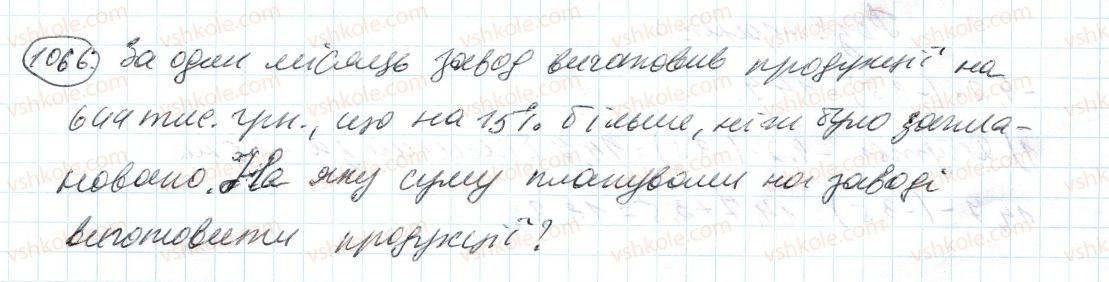 1066. За один місяць завод виготовив продукції на
644 тис. грн., що на 15% більше, ніж було запла-
новано. На яку суму планували на заводі
виготовити продукції?